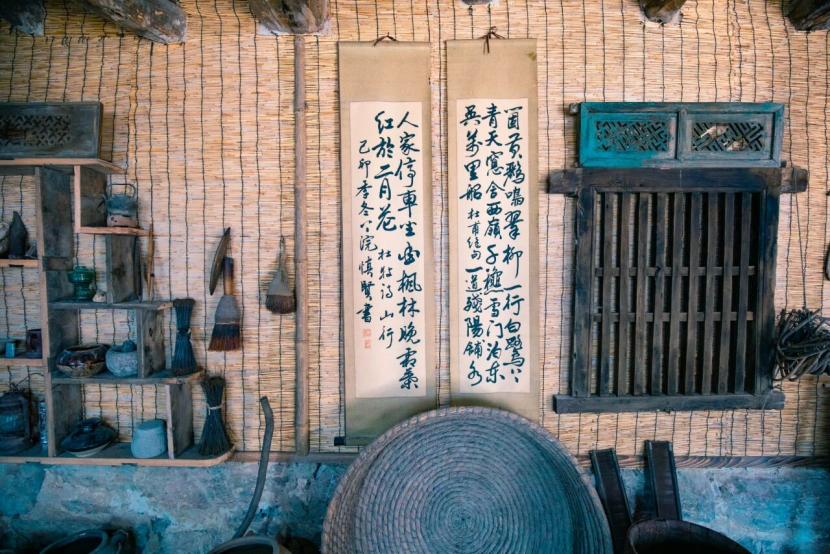 箇黃鸝鳴翠柳一行白鷺上
青天窓含西嶺千秋雪門泊東
吳萬里船 杜甫絶句 一道殘陽鋪水
人家停車坐愛楓林晚霜葉
紅於二月花 杜牧詩山行
己卯季冬上浣慎賢書